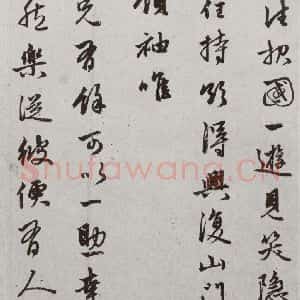 法招國一遊見笑隱
住持以得興復山門
領袖唯
兄有餘可以一助幸
然樂從彼便有人
Shufawang.CN